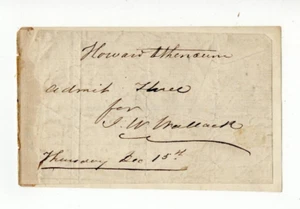 Howard Athenaeum
Admit three
for
J. W. Wallack
Thursday Dec 15th